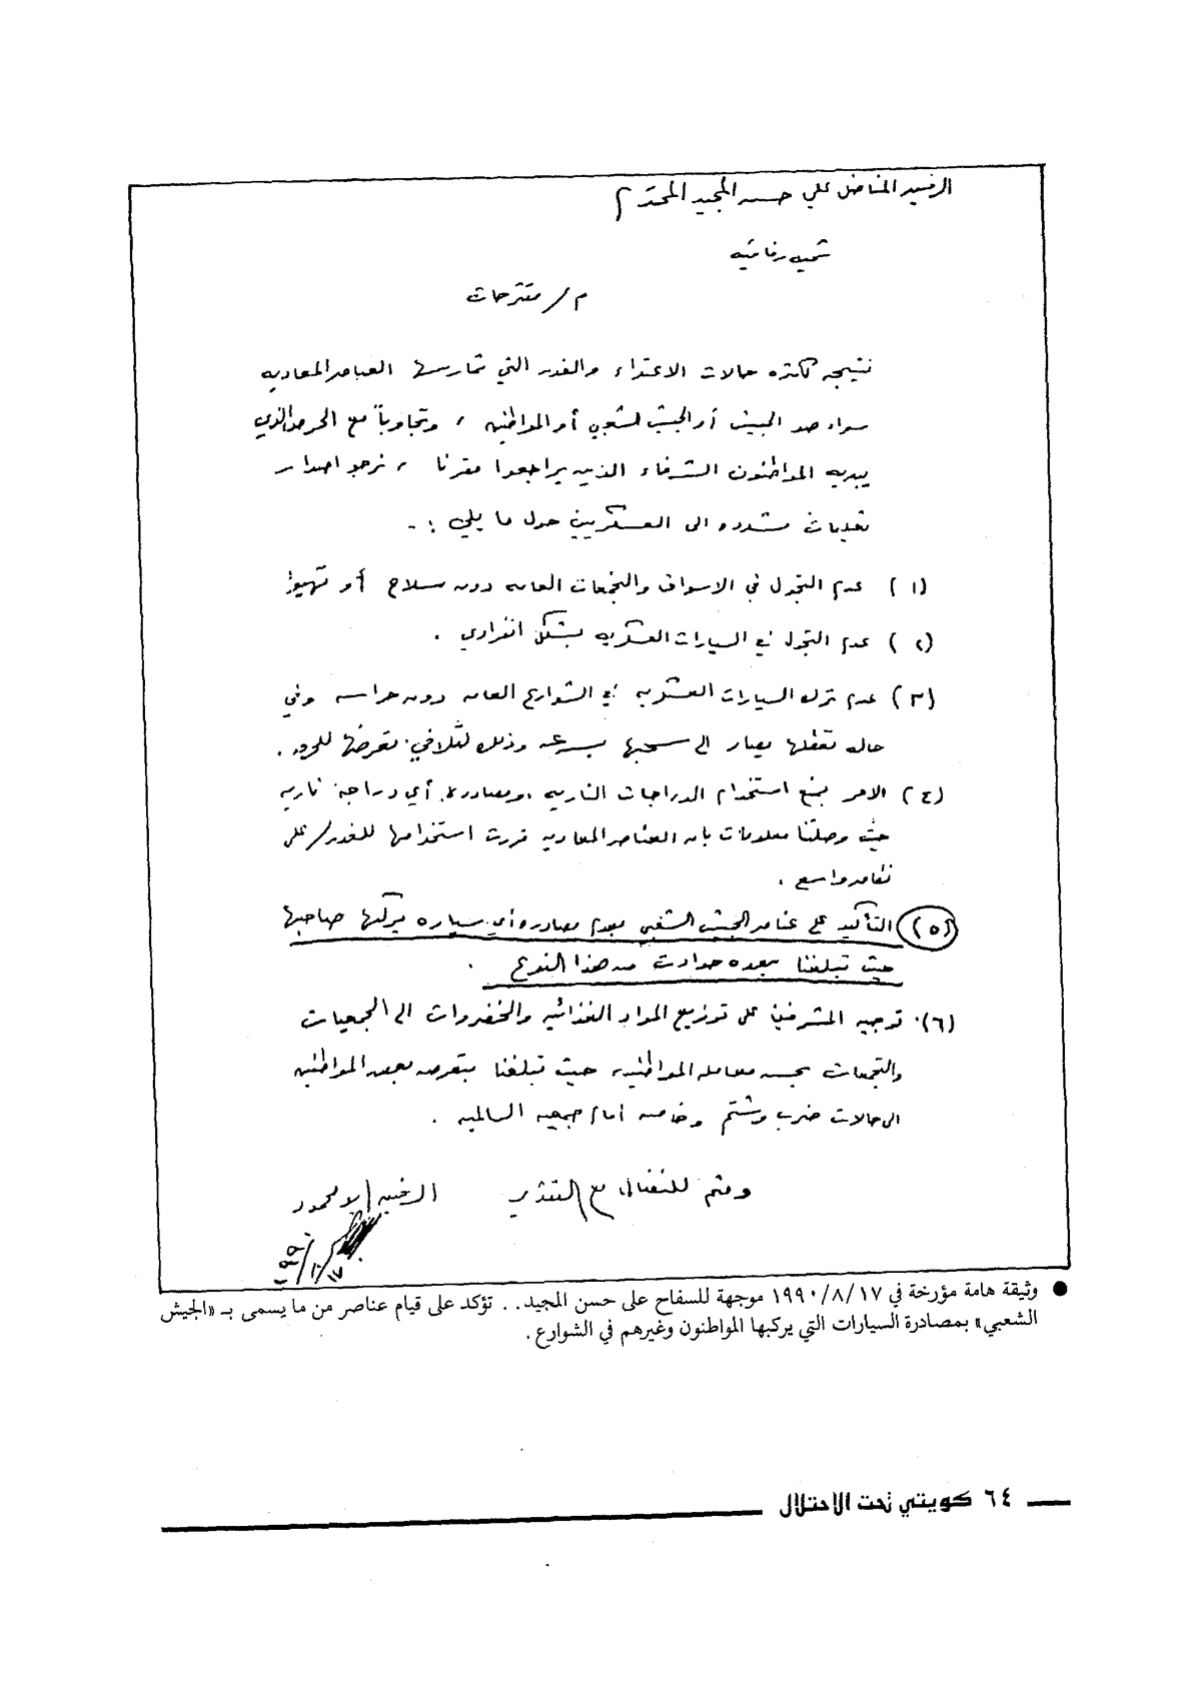 الرفيق المناضل علي حسن المجيد المحترم
تحيه رفاقيه
م / مقترحات
نتيجه لكثره حالات الاعتداء والغدر التي تمارسها العناصر المعاديه
سواء ضد الجيش أو الجيش الشعبي أو المواطنين ، وتجاوباً مع الحرص الذي
يبديه المواطنون الشرفاء الذين يراجعوا مقرنا ، نرجو اصدار
تعليمات مشدده الى العسكريين حول ما يلي :-
(١) عدم التجول في الاسواق والتجمعات العامه دون سلاح أو تهيؤ
(٢) عدم التجول في السيارات العسكريه بشكل انفرادي .
(٣) عدم ترك السيارات العسكريه في الشوارع العامه دون حراسه وفي
حاله تعطلها يصار الى سحبها بسرعه وذلك لتلافي تعرضها للحرق .
(٤) الامر بمنع استخدام الدراجات الناريه ومصادرة أي دراجة ناريه
حيث وصلتنا معلومات بان العناصر المعاديه قررت استخدامها للغدر / على
نطاق واسع .
(٥) التأكيد على عناصر الجيش الشعبي بعدم مصادره أي سياره يركبها صاحبها
حيث تبلغنا بعده حوادث من هذا النوع .
(٦) توجيه المشرفين على توزيع المواد الغذائيه والخضروات الى الجمعيات
والتجمعات بحسن معامله المواطنين حيث تبلغنا بتعرض بعض المواطنين
الى حالات ضرب وشتم وخاصه امام جمعيه السالميه .
ودمتم للنضال مع التقدير الرفيق / ابو محمود
● وثيقة هامة مؤرخة في ١٩٩٠/٨/١٧ موجهة للسفاح على حسن المجيد . . تؤكد على قيام عناصر من ما يسمى بـ «الجيش
الشعبي» بمصادرة السيارات التي يركبها المواطنون وغيرهم في الشوارع .
٦٤ كويتي تحت الاحتلال